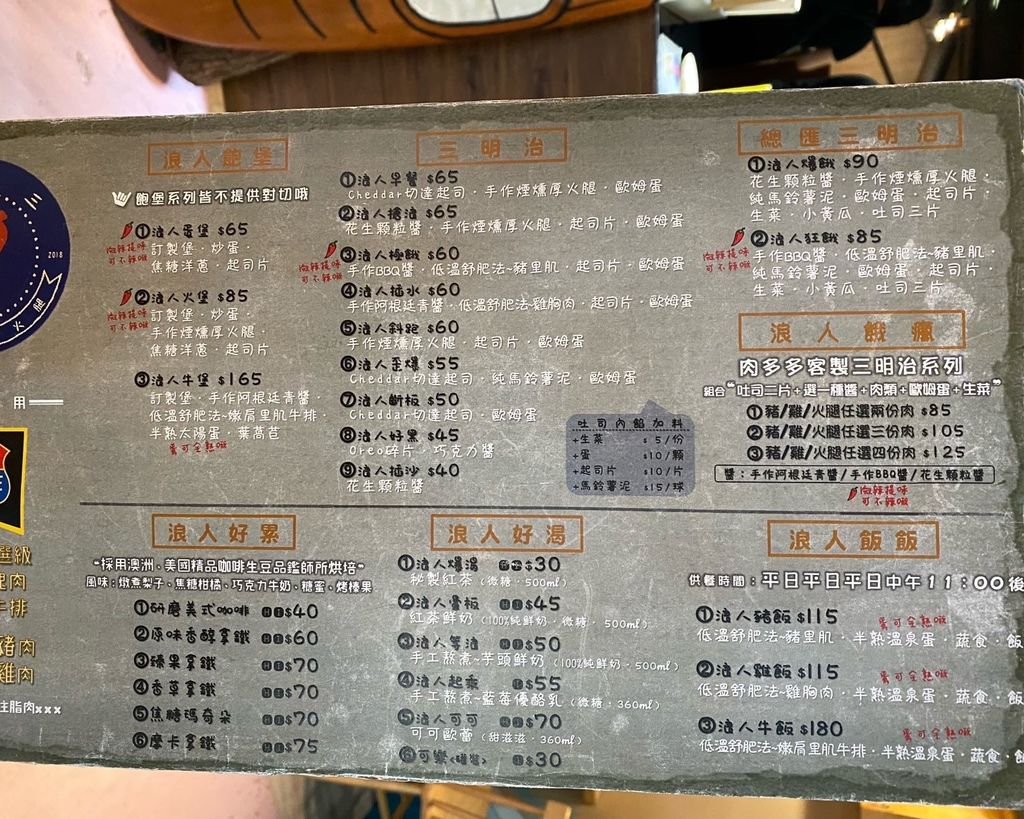 浪人飽堡
飽堡系列皆不提供對切哦
①浪人蛋堡 $65
微辣提味
可不辣哦
訂製堡．炒蛋．
焦糖洋蔥．起司片
②浪人火堡 $85
微辣提味
可不辣哦
訂製堡．炒蛋．
手作煙燻厚火腿．
焦糖洋蔥．起司片
③浪人牛堡 $165
訂製堡．手作阿根廷青醬．
低溫舒肥法~嫩肩里肌牛排．
半熟太陽蛋．葉萵苣
蛋可全熟哦
三明治
①浪人早餐 $65
Cheddar切達起司．手作煙燻厚火腿．歐姆蛋
②浪人擠油 $65
花生顆粒醬．手作煙燻厚火腿．起司片．歐姆蛋
③浪人極餓 $60
微辣提味
可不辣哦
手作BBQ醬．低溫舒肥法~豬里肌．起司片．歐姆蛋
④浪人插水 $60
手作阿根廷青醬．低溫舒肥法~雞胸肉．起司片．歐姆蛋
⑤浪人斜跑 $60
手作煙燻厚火腿．起司片．歐姆蛋
⑥浪人歪爆 $55
Cheddar切達起司．純馬鈴薯泥．歐姆蛋
⑦浪人斷板 $50
Cheddar切達起司．歐姆蛋
⑧浪人好黑 $45
Oreo碎片．巧克力醬
⑨浪人插沙 $40
花生顆粒醬
吐司內餡加料
+生菜 $5/份
+蛋 $10/顆
+起司片 $10/片
+馬鈴薯泥 $15/球
總匯三明治
①浪人爆餓 $90
花生顆粒醬．手作煙燻厚火腿．
純馬鈴薯泥．歐姆蛋．起司片．
生菜．小黃瓜．吐司三片
②浪人狂餓 $85
微辣提味
可不辣哦
手作BBQ醬．低溫舒肥法~豬里肌．
純馬鈴薯泥．歐姆蛋．起司片．
生菜．小黃瓜．吐司三片
浪人餓瘋
肉多多客製三明治系列
組合"吐司二片+選一種醬+肉類+歐姆蛋+生菜"
①豬/雞/火腿任選兩份肉 $85
②豬/雞/火腿任選三份肉 $105
③豬/雞/火腿任選四份肉 $125
醬：手作阿根廷青醬/手作BBQ醬/花生顆粒醬
微辣提味
可不辣哦
浪人好累
"採用澳洲、美國精品咖啡生豆品鑑師所烘培"
風味：燉煮梨子、焦糖柑橘、巧克力牛奶、糖蜜、烤榛果
①研磨美式咖啡 $40
②原味香醇拿鐵 $60
③榛果拿鐵 $70
④香草拿鐵 $70
⑤焦糖瑪奇朵 $70
⑥摩卡拿鐵 $75
浪人好渴
①浪人爆湯 $30
秘製紅茶（微糖．500ml）
②浪人疊板 $45
紅茶鮮奶（100%純鮮奶．微糖．500ml）
③浪人等浪 $50
手工熬煮~芋頭鮮奶（100%純鮮奶．500ml）
④浪人起乘 $55
手工熬煮~藍莓優酪乳（微糖：360ml）
⑤浪人可可 $70
可可歐蕾（甜滋滋．360ml）
⑥可樂<罐裝> $30
浪人飯飯
供餐時間：平日平日平日中午11：00後
①浪人豬飯 $115
蛋可全熟哦
低溫舒肥法~豬里肌．半熟溫泉蛋．蔬食．飯
②浪人雞飯 $115
蛋可全熟哦
低溫舒肥法~雞胸肉．半熟溫泉蛋．蔬食．飯
③浪人牛飯 $180
蛋可全熟哦
低溫舒肥法~嫩肩里肌牛排．半熟溫泉蛋．蔬食．飯
三
2018
火腿
用
選級
肉
牛排
豬肉
雞肉
注脂肉xxx